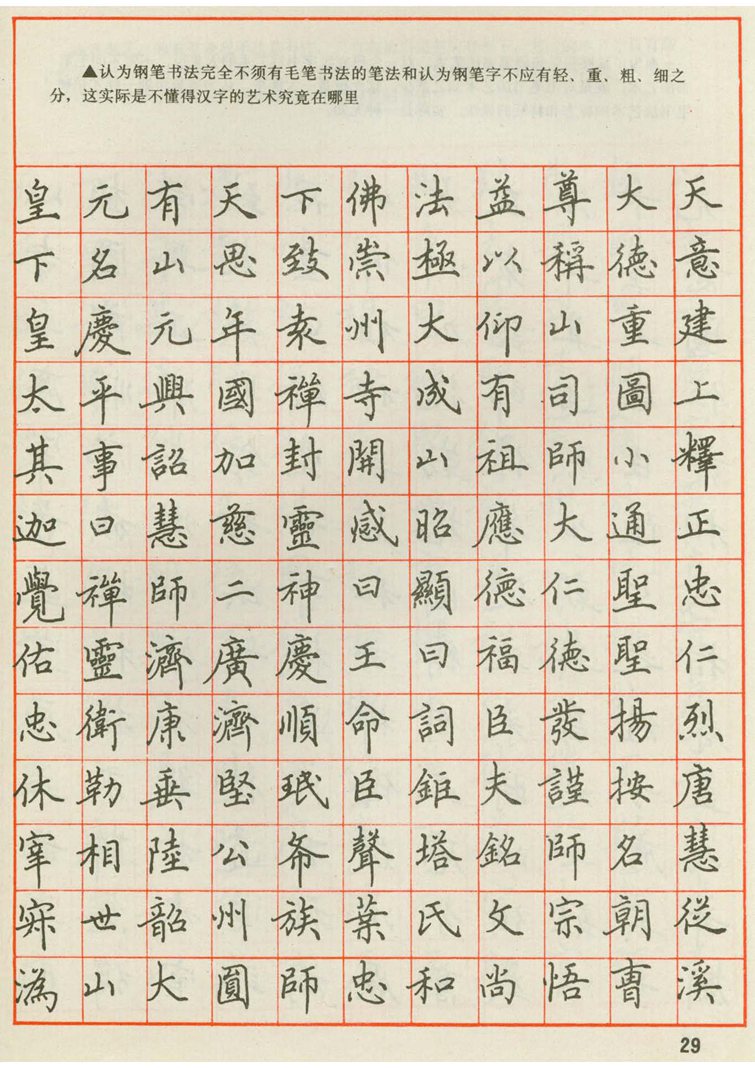 ▲认为钢笔书法完全不须有毛笔书法的笔法和认为钢笔字不应有轻、重、粗、细之
分，这实际是不懂得汉字的艺术究竟在哪里
皇元有天下佛法益尊大天
下名山思致崇極以稱德意
皇慶元年袁州大仰山重建
太平興國禪寺成有司圖上
其事詔加封開山祖師小釋
迦曰慧慈靈感昭應大通正
覺禪師二神曰顯德仁聖忠
佑靈濟廣慶王曰福德聖仁
忠衛康濟順命詞臣發揚烈
休勒垂堅珉臣鉅夫謹按唐
宰相陸公希聲塔銘師名慧
寂世韶州族葉氏文宗朝從
溈山大圓師忠和尚悟曹溪
29